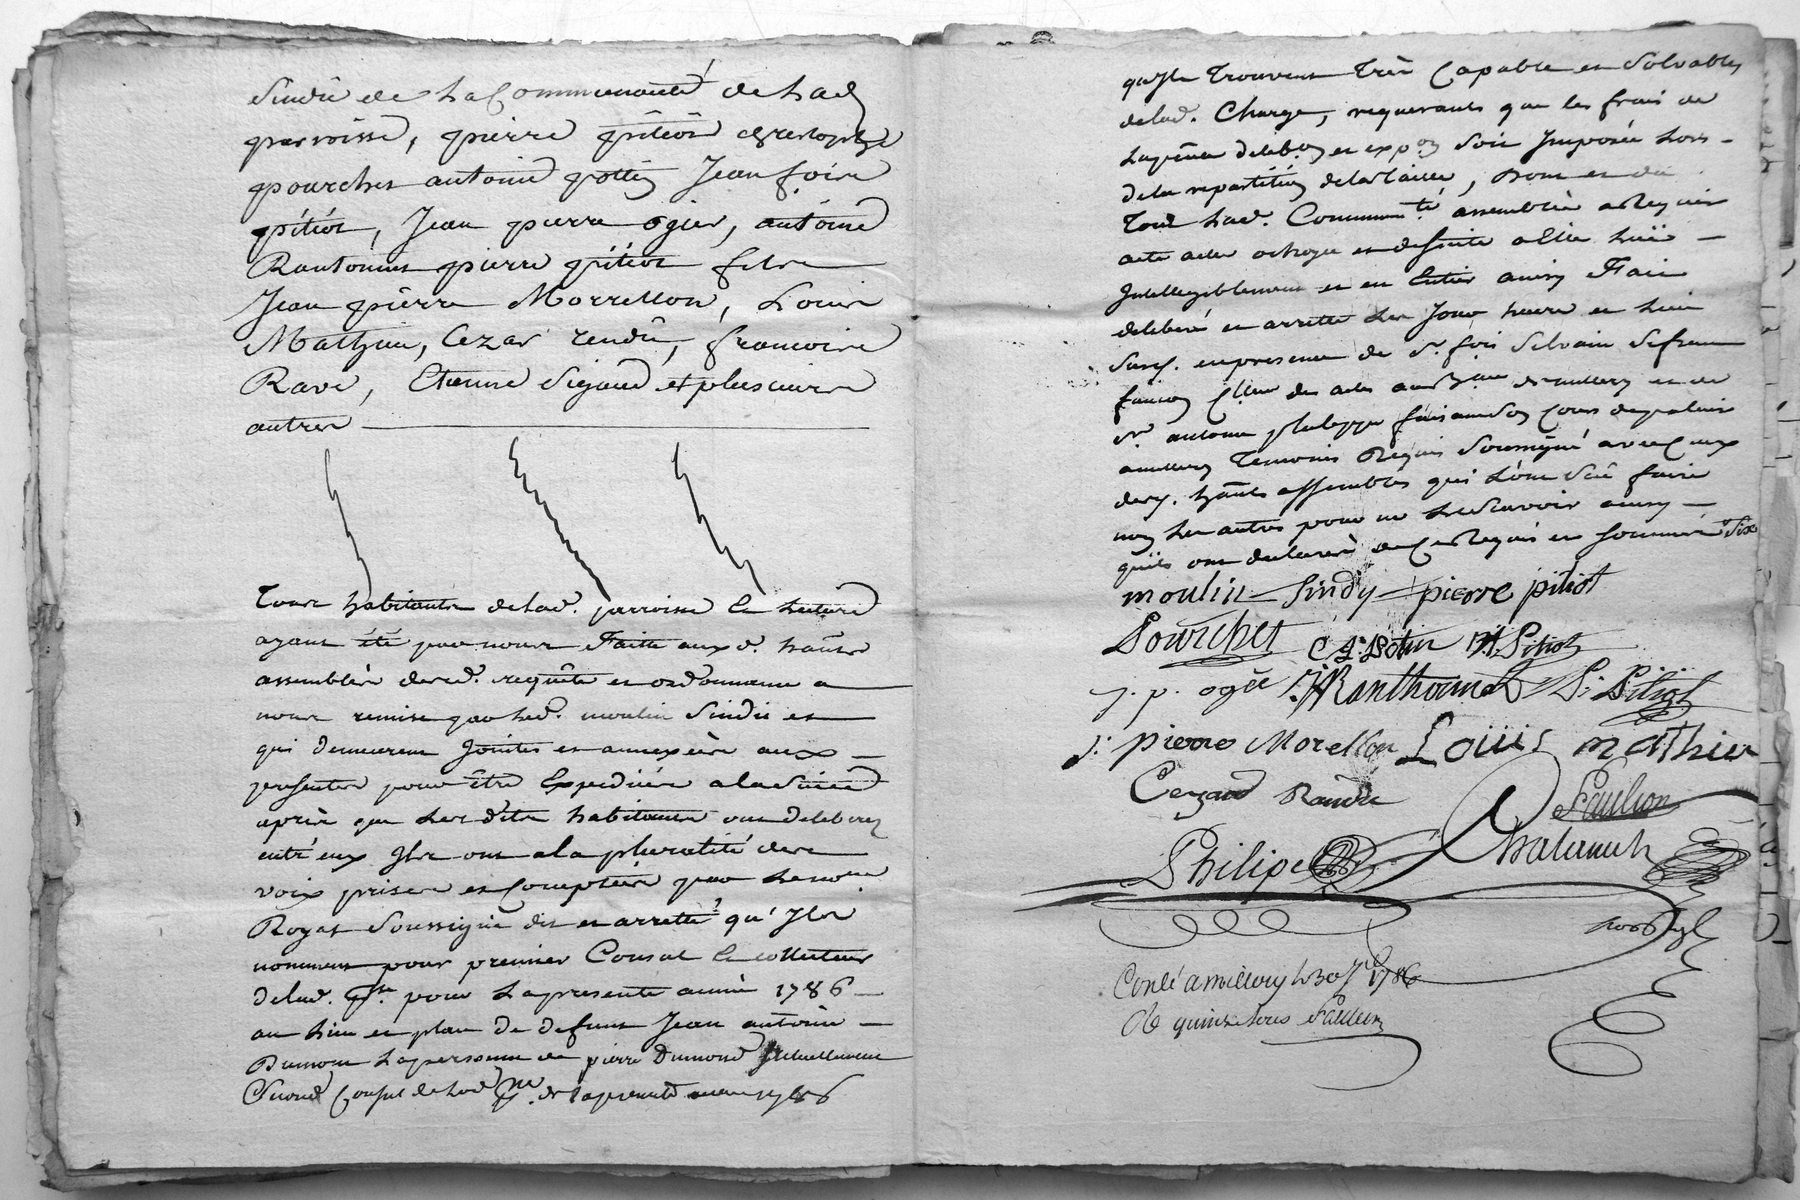 Sindic de La Communauté de Lad
parroisse, pierre pitiot christophe
pourchet antoine pottin Jean foire
pitiot, Jean pierre ogier, antoine
Rantonnet pierre pitiot fils
Jean pierre Morrellon, Louis
Mathieu, Cezar rendu, francoise
Rave, Etienne Sigaud et plusieurs
autres
Tous habitants delad. parroisse la Lecture
ayant été par nous Faitte auxd. habts
assemblés desd. requête et ordonnance a
nous remise par led. moulin Sindic et
qui demeurent Jointes et annexées aux
presentes pour être Expediées a la Suitte
après que Les dits habitants ont deliberez
entr'eux Ils ont a la pluralité des
voix prises et Comptées par Le nore
Royal Soussigné dit et arretté qu'Ils
nomment pour premier Consul et collecteur
delad. psse pour La presente année 1786
au Lieu et place de defunt Jean antoine
Dumont La personne de pierre Dumond Actuellement
Second Consul de Lad pse de la presente année 1786
qu'Ils Trouvent Très Capable et Solvable
delad. Charge, requerants que les frais de
La presente delibon et expon Soit Imposée Lors
de la repartition de la taille, Dont et de
Tout Lad. Communté assemblée a Requis
acte a elle octroyé et desuite a Elle Lu
Intelligiblement et en Entier ainsy Fait
deliberé et arretté Les Jour heure et Lieu
Susd. en presence de Sr. fçois Silvain
Sr antoine philippe
Temoins Requis Soussigné avec Ceux
desd. habts assemblés qui L'ont Scu faire
non Les autres pour ne Le Scavoir ainsy
qu'ils ont declaré de Ce Requis et Sommé Six
moulin Sindy pierre pitiot
Pourchet C A: Potin M. Pitiot
J. p. ogée Ranthonnet P: Pitiot
J: pierre Morellon Louis mathieu
Cezard Randu
Philipe
Conlé a millery le 30 Jer 1786
Re quinze sous